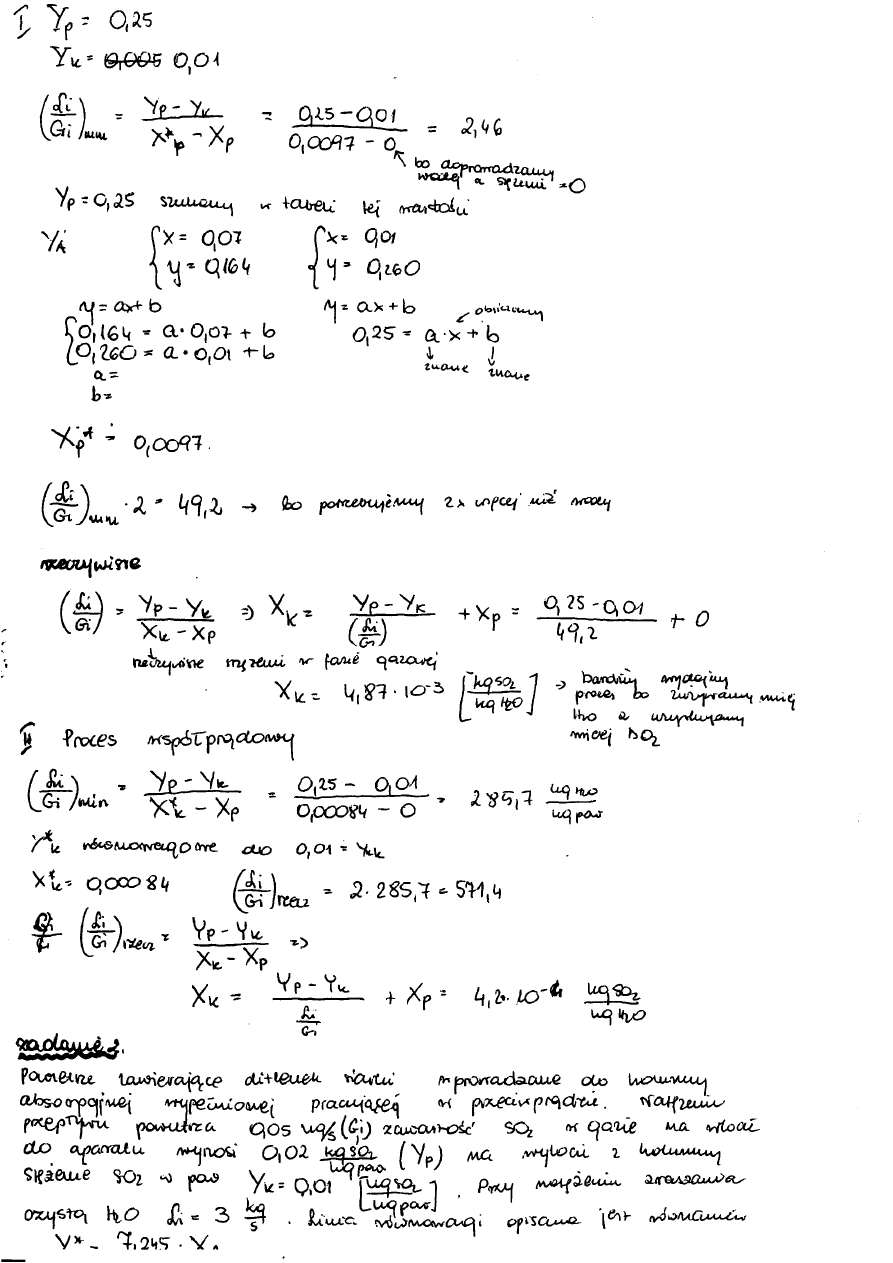 I Yp = 0,25
Yk = 0,005 0,01
(Li/Gi)min = (Yp - Yk)/(X*p - Xp) = (0,25 - 0,01)/(0,0097 - 0) = 2,46
bo doprowadzamy
wodę a stężeni = 0
Yp = 0,25 szukamy w tabeli tej wartości
{x = 0,07 {x = 0,01
{y = 0,164 {y = 0,260
y = ax + b y = ax + b obliczamy
{0,164 = a · 0,07 + b 0,25 = a · x + b
{0,260 = a · 0,01 + b znane znane
a =
b =
Xp* = 0,0097.
(Li/Gi)min · 2 = 49,2 → bo potrzebujemy 2x więcej niż wody
rzeczywiste
(Li/Gi) = (Yp - Yk)/(Xk - Xp) => Xk = (Yp - Yk)/(Li/Gi) + Xp = (0,25 - 0,01)/49,2 + 0
w fazie gazowej
Xk = 4,87 · 10-3 [kg SO2/kg H2O] → bardziej wydajny
proces bo zużywamy mniej
H2O a
więcej SO2
II Proces współprądowy
(Li/Gi)min = (Yp - Yk)/(X*k - Xp) = (0,25 - 0,01)/(0,00084 - 0) = 285,7 kg H2O/kg pow
Y*k równowagowe do 0,01 = Yk
X*k = 0,00084 (Li/Gi)rzecz = 2 · 285,7 = 571,4
(Li/Gi)rzecz = (Yp - Yk)/(Xk - Xp) =>
Xk = (Yp - Yk)/(Li/Gi) + Xp = 4,2 · 10-4 kg SO2/kg H2O
zadanie 2.
Powietrze zawierające ditlenek siarki wprowadzane do kolumny
absorpcyjnej wypełnionej pracującej w przeciwprądzie. Natężenie
przepływu powietrza 0,05 kg/s (Gi) zawartość SO2 w gazie na wlocie
do aparatu wynosi 0,02 kg SO2/kg pow (Yp) na wylocie z kolumny
stężenie SO2 w pow Yk = 0,01 [kg SO2/kg pow]. Przy natężeniu zraszania
czystą H2O Li = 3 kg/s. Linia równowagi opisana jest równaniem
Y* = 7,245 · X